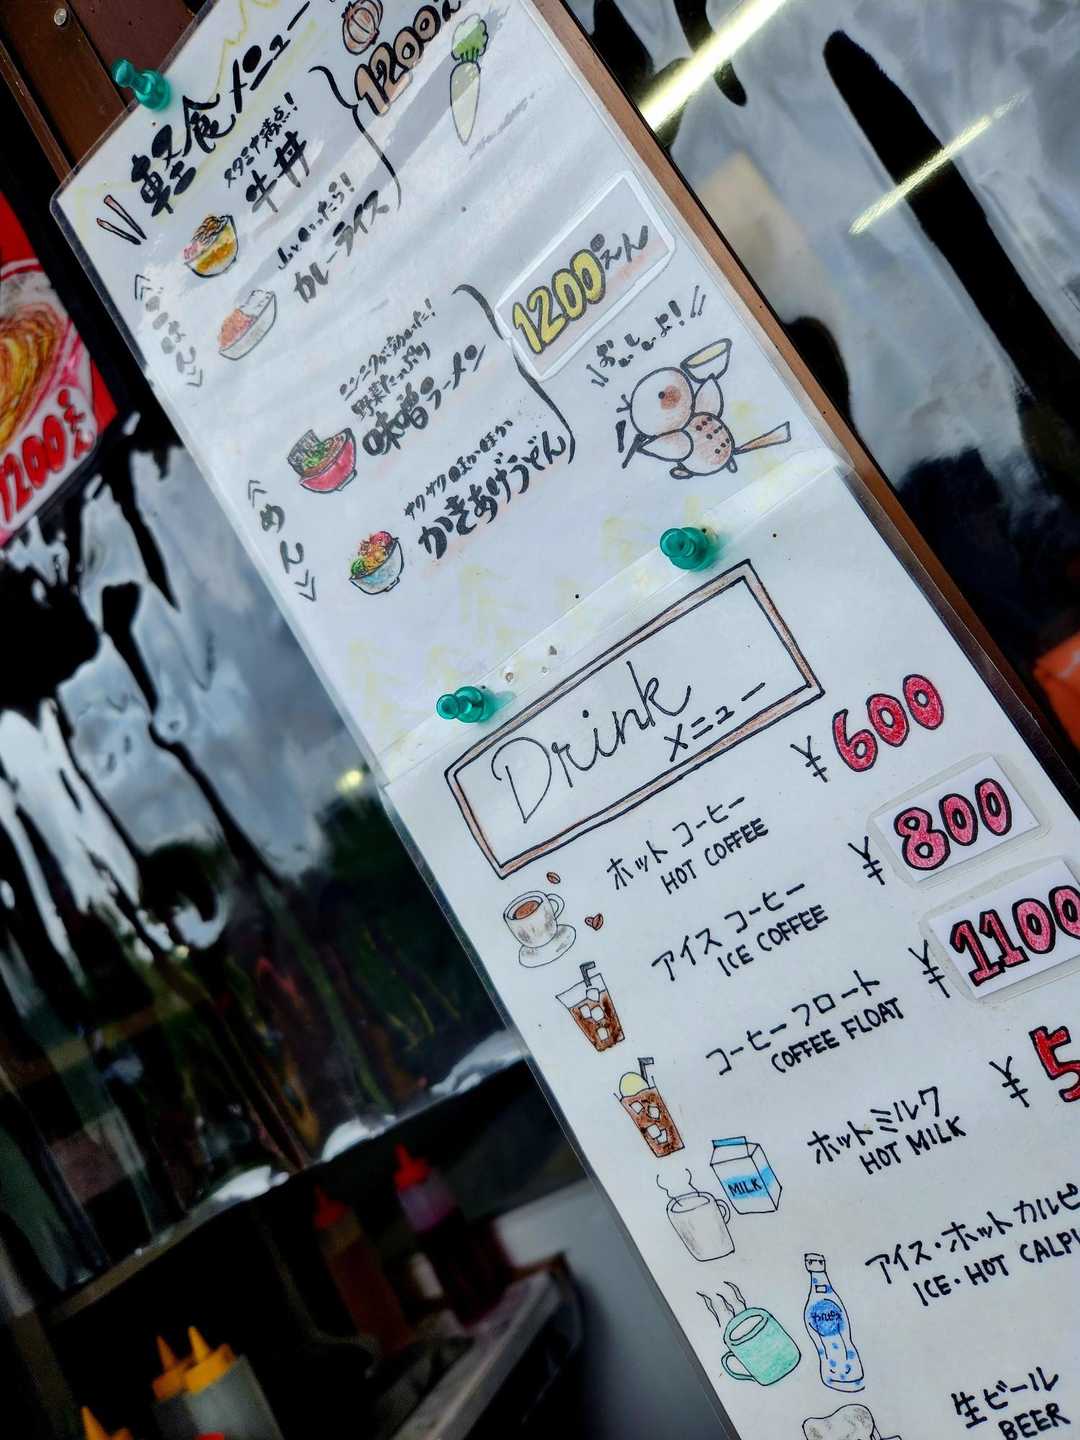 軽食メニュー
スタミナ満点!
牛丼
1200えん
山といったら!
カレーライス
《ごはん》
1200えん
ニンニクがきいた!
野菜たっぷり
味噌ラーメン
おいしいよ!
サクサクほかほか
かきあげうどん
《めん》
1200えん
Drink
メニュー
ホットコーヒー ¥600
HOT COFFEE
アイスコーヒー ¥800
ICE COFFEE
コーヒーフロート ¥1100
COFFEE FLOAT
ホットミルク ¥5
HOT MILK
MILK
アイス・ホットカルピ
ICE・HOT CALPI
カルピス
生ビール
BEER